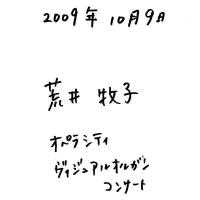 2009年10月9日
荒井 牧子
オペラシティ
ヴィジュアルオルガン
コンサート